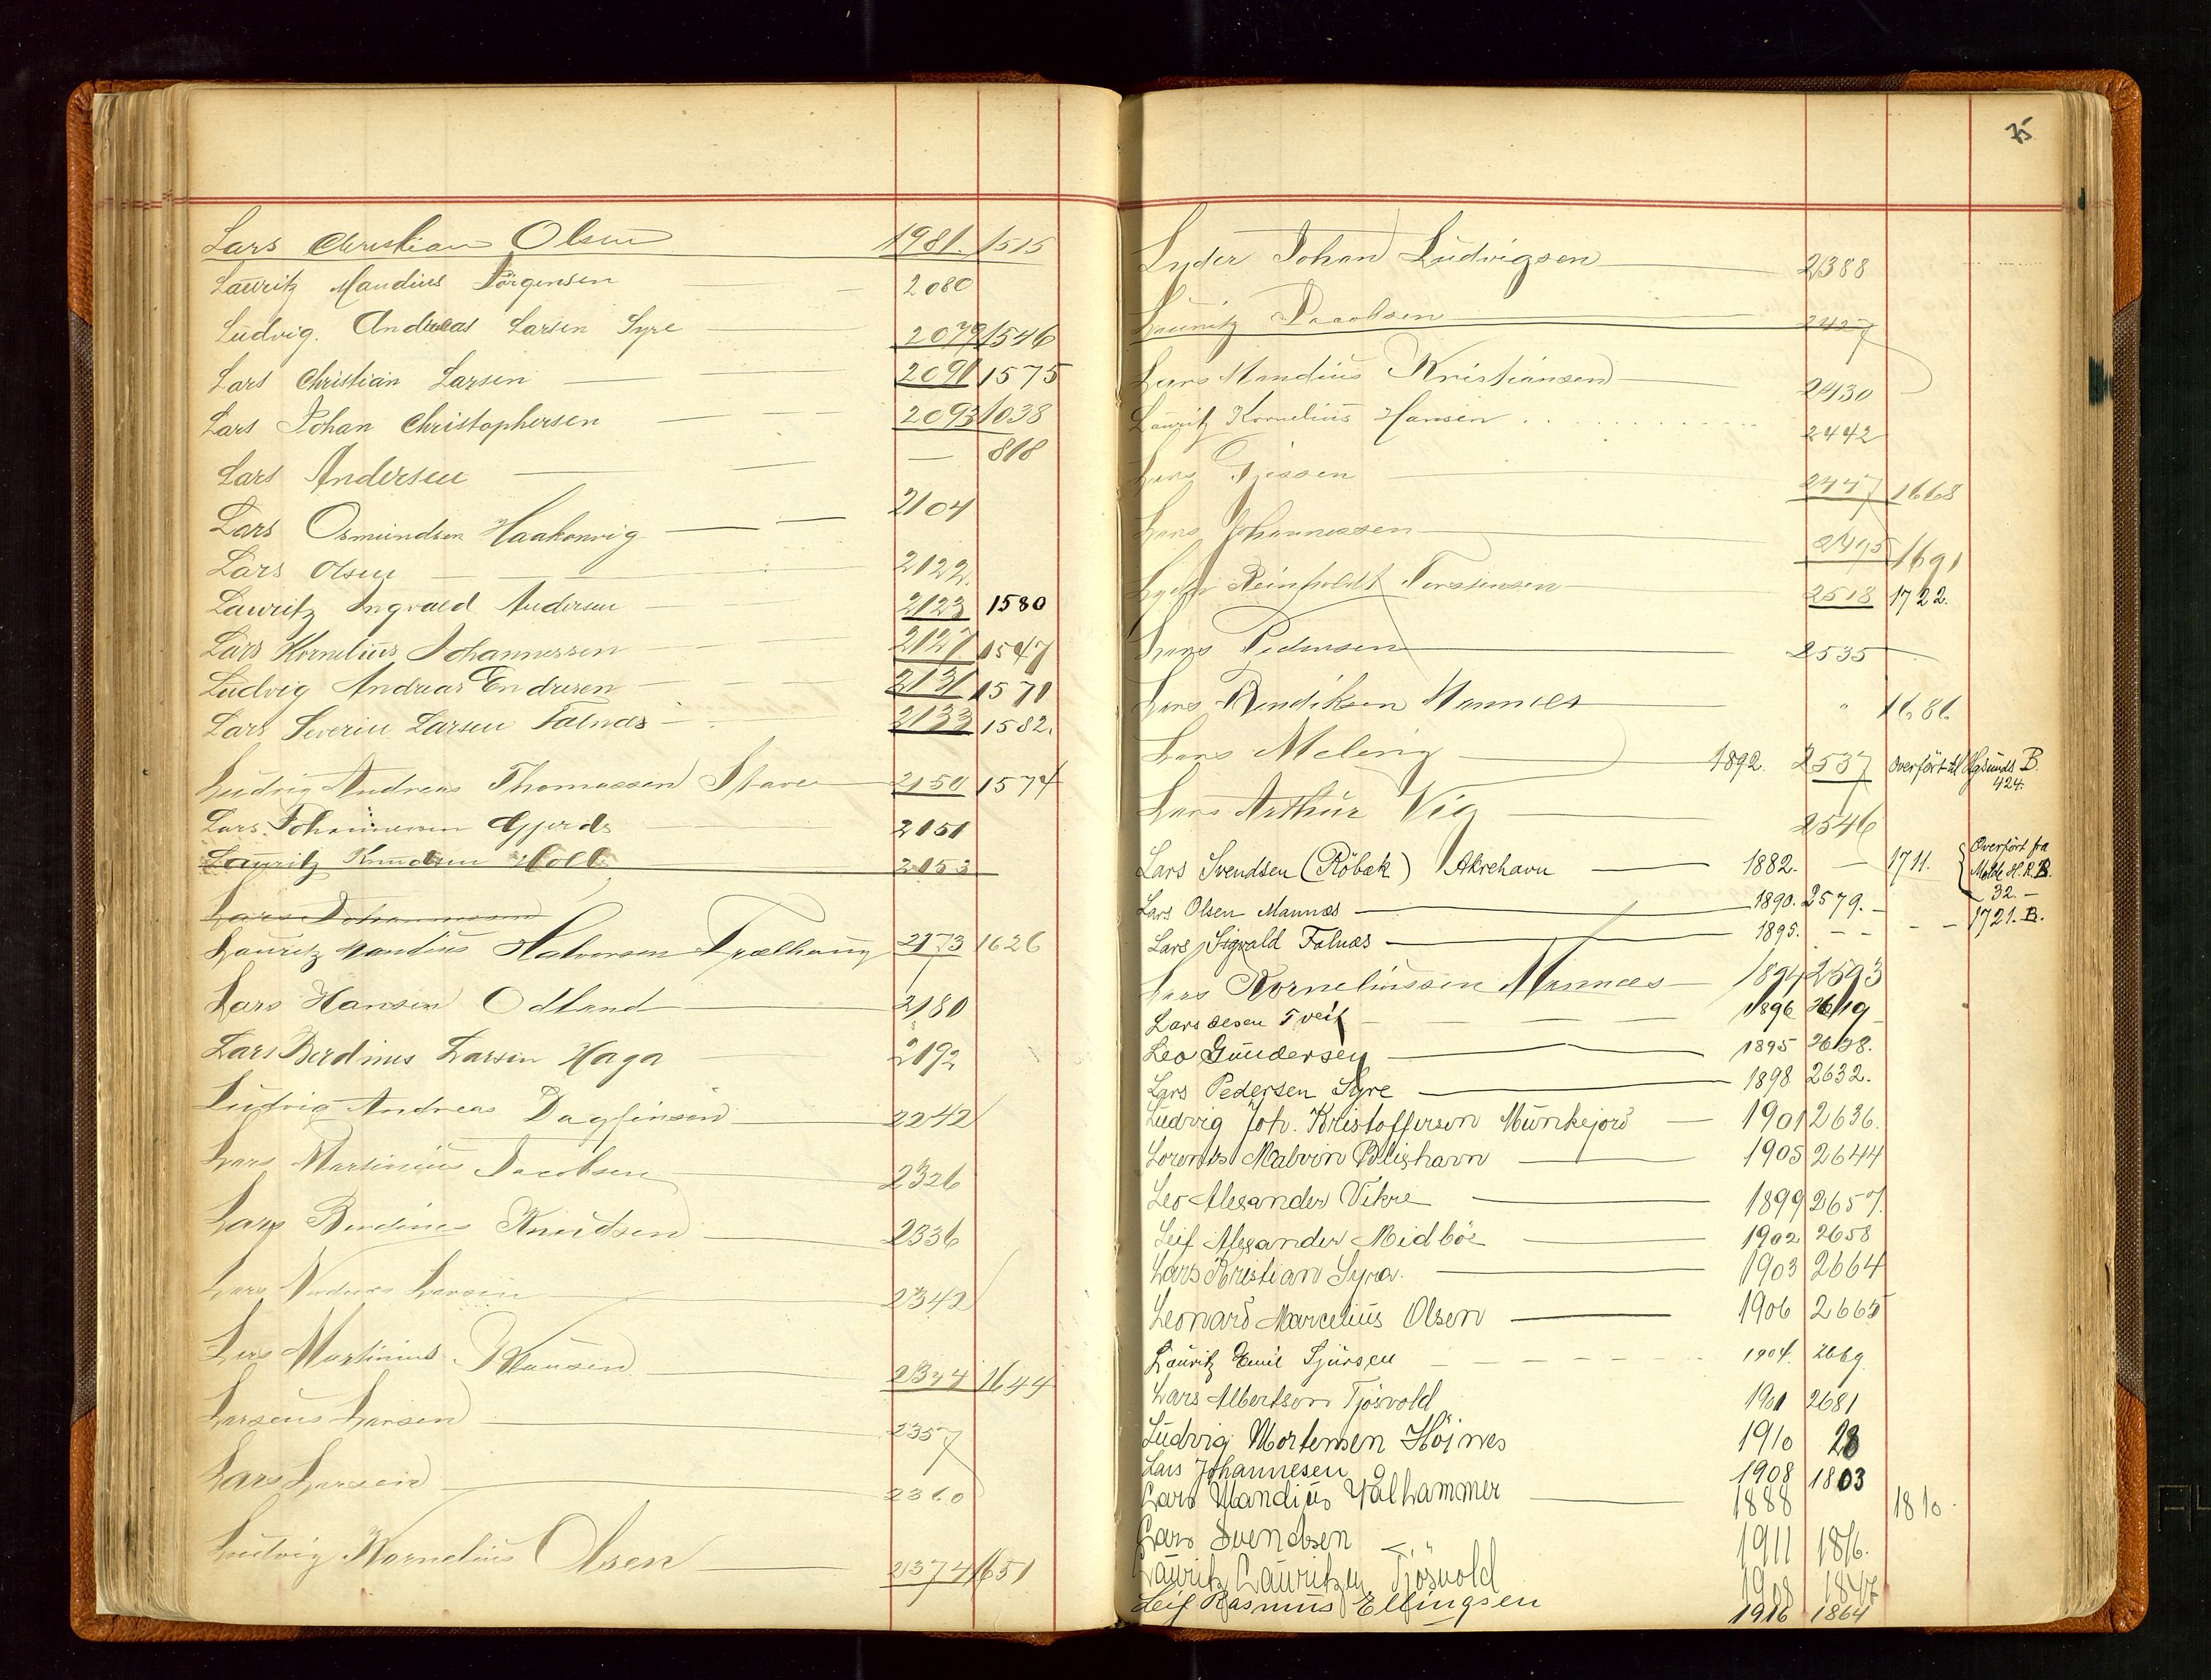 Lars Christian Olsen 1981. 1515
Lauritz Mandius Jörgensen — 2080
Ludvig. Andreas Larsen Syre — 2079 1546
Lars Christian Larsen — — 2091 1575
Lars Johan Christophersen — — — 2093 1038
Lars Andersen — — — — 818
Lars Osmundsen Haakonvig — — 2104
Lars Olsen — — 2122.
Lauritz Ingvald Andersen — — 2123 1580
Lars Kornelius Johannessen — — 2127 1547
Ludvig Andreas Endresen — — — 2131 1571
Lars Severin Larsen Falnes — 2133 1582.
Ludvig Andreas Thomassen Stave — 2150 1574
Lars Johannessen Gjerde 2151
Lauritz Knudsen Holl 2153
Lars Johannessen
Lauritz Mandius Halvorsen Trælhaug 2173 1626
Lars Hansen Odland — 2180
Lars Berdines Larsen Haga — 2192
Ludvig Andreas Dagfinsen — 2242
Lars Martinius Jacobsen — 2326
Lars Berdines Knudsen — 2336
Lars Larsen — 2342
Lars Martinius Hansen — 2344 1644
Larseus Larsen — 2357
Lars Larsen — 2360
Ludvig Kornelius Olsen — 2374 1651
75
Lyder Johan Ludvigsen — 2388
Lauritz Jacobsen — 2427
Lars Mandius Kristiansen — 2430
Lauritz Kornelius Hansen . . . . . 2442
Lars — 2447 1668
Lars Johannessen — 2495 1691
Lyder Reinholdt Torstensen — 2518 1722.
Lars Pedersen — 2535
Lars Bendiksen Mannes — " 1686
Lars Meling — 1892. 2537 Overfört til Hgsunds B. 424.
Lars Arthur Vig — 2546
Lars Svendsen (Röbak) Akrehavn — 1882. — 1711. Overfört fra Molde H.R.B. 32. —
Lars Olsen Mannes — 1890. 2579. —
Lars Sigvald Falnæs — 1895. — — — — 1721. B.
Lars Korneliussen Mannes — 1894 2593
Lars Olsen Tveit — — — 1896 2619
Leo Gundersen — 1895 2628.
Lars Pedersen Syre — 1898 2632.
Ludvig Joh. Kristoffersen Munkejord — 1901 2636.
Lorents Malvin Blighavn — 1905 2644
Leo Alexander Vikre — 1899 2657.
Leif Alexander Midböe — 1902 2658
Lars Kristian Syre. — 1903 2664
Leonard Marcelius Olsen — 1906 2665
Lauritz Emil Sjursen — — — — 1904. 2669
Lars Albertsen Tjösvold 1901 2681
Ludvig Mortensen Höines 1910 28
Lars Johannesen 1908 1803
Lars Mandius Valhammer — 1888 1810.
Lars Svendsen 1911 1816.
Lauritz Lauritzen Tjösvold 1908 1847
Leif Rasmus Ellingsen 1916 1864